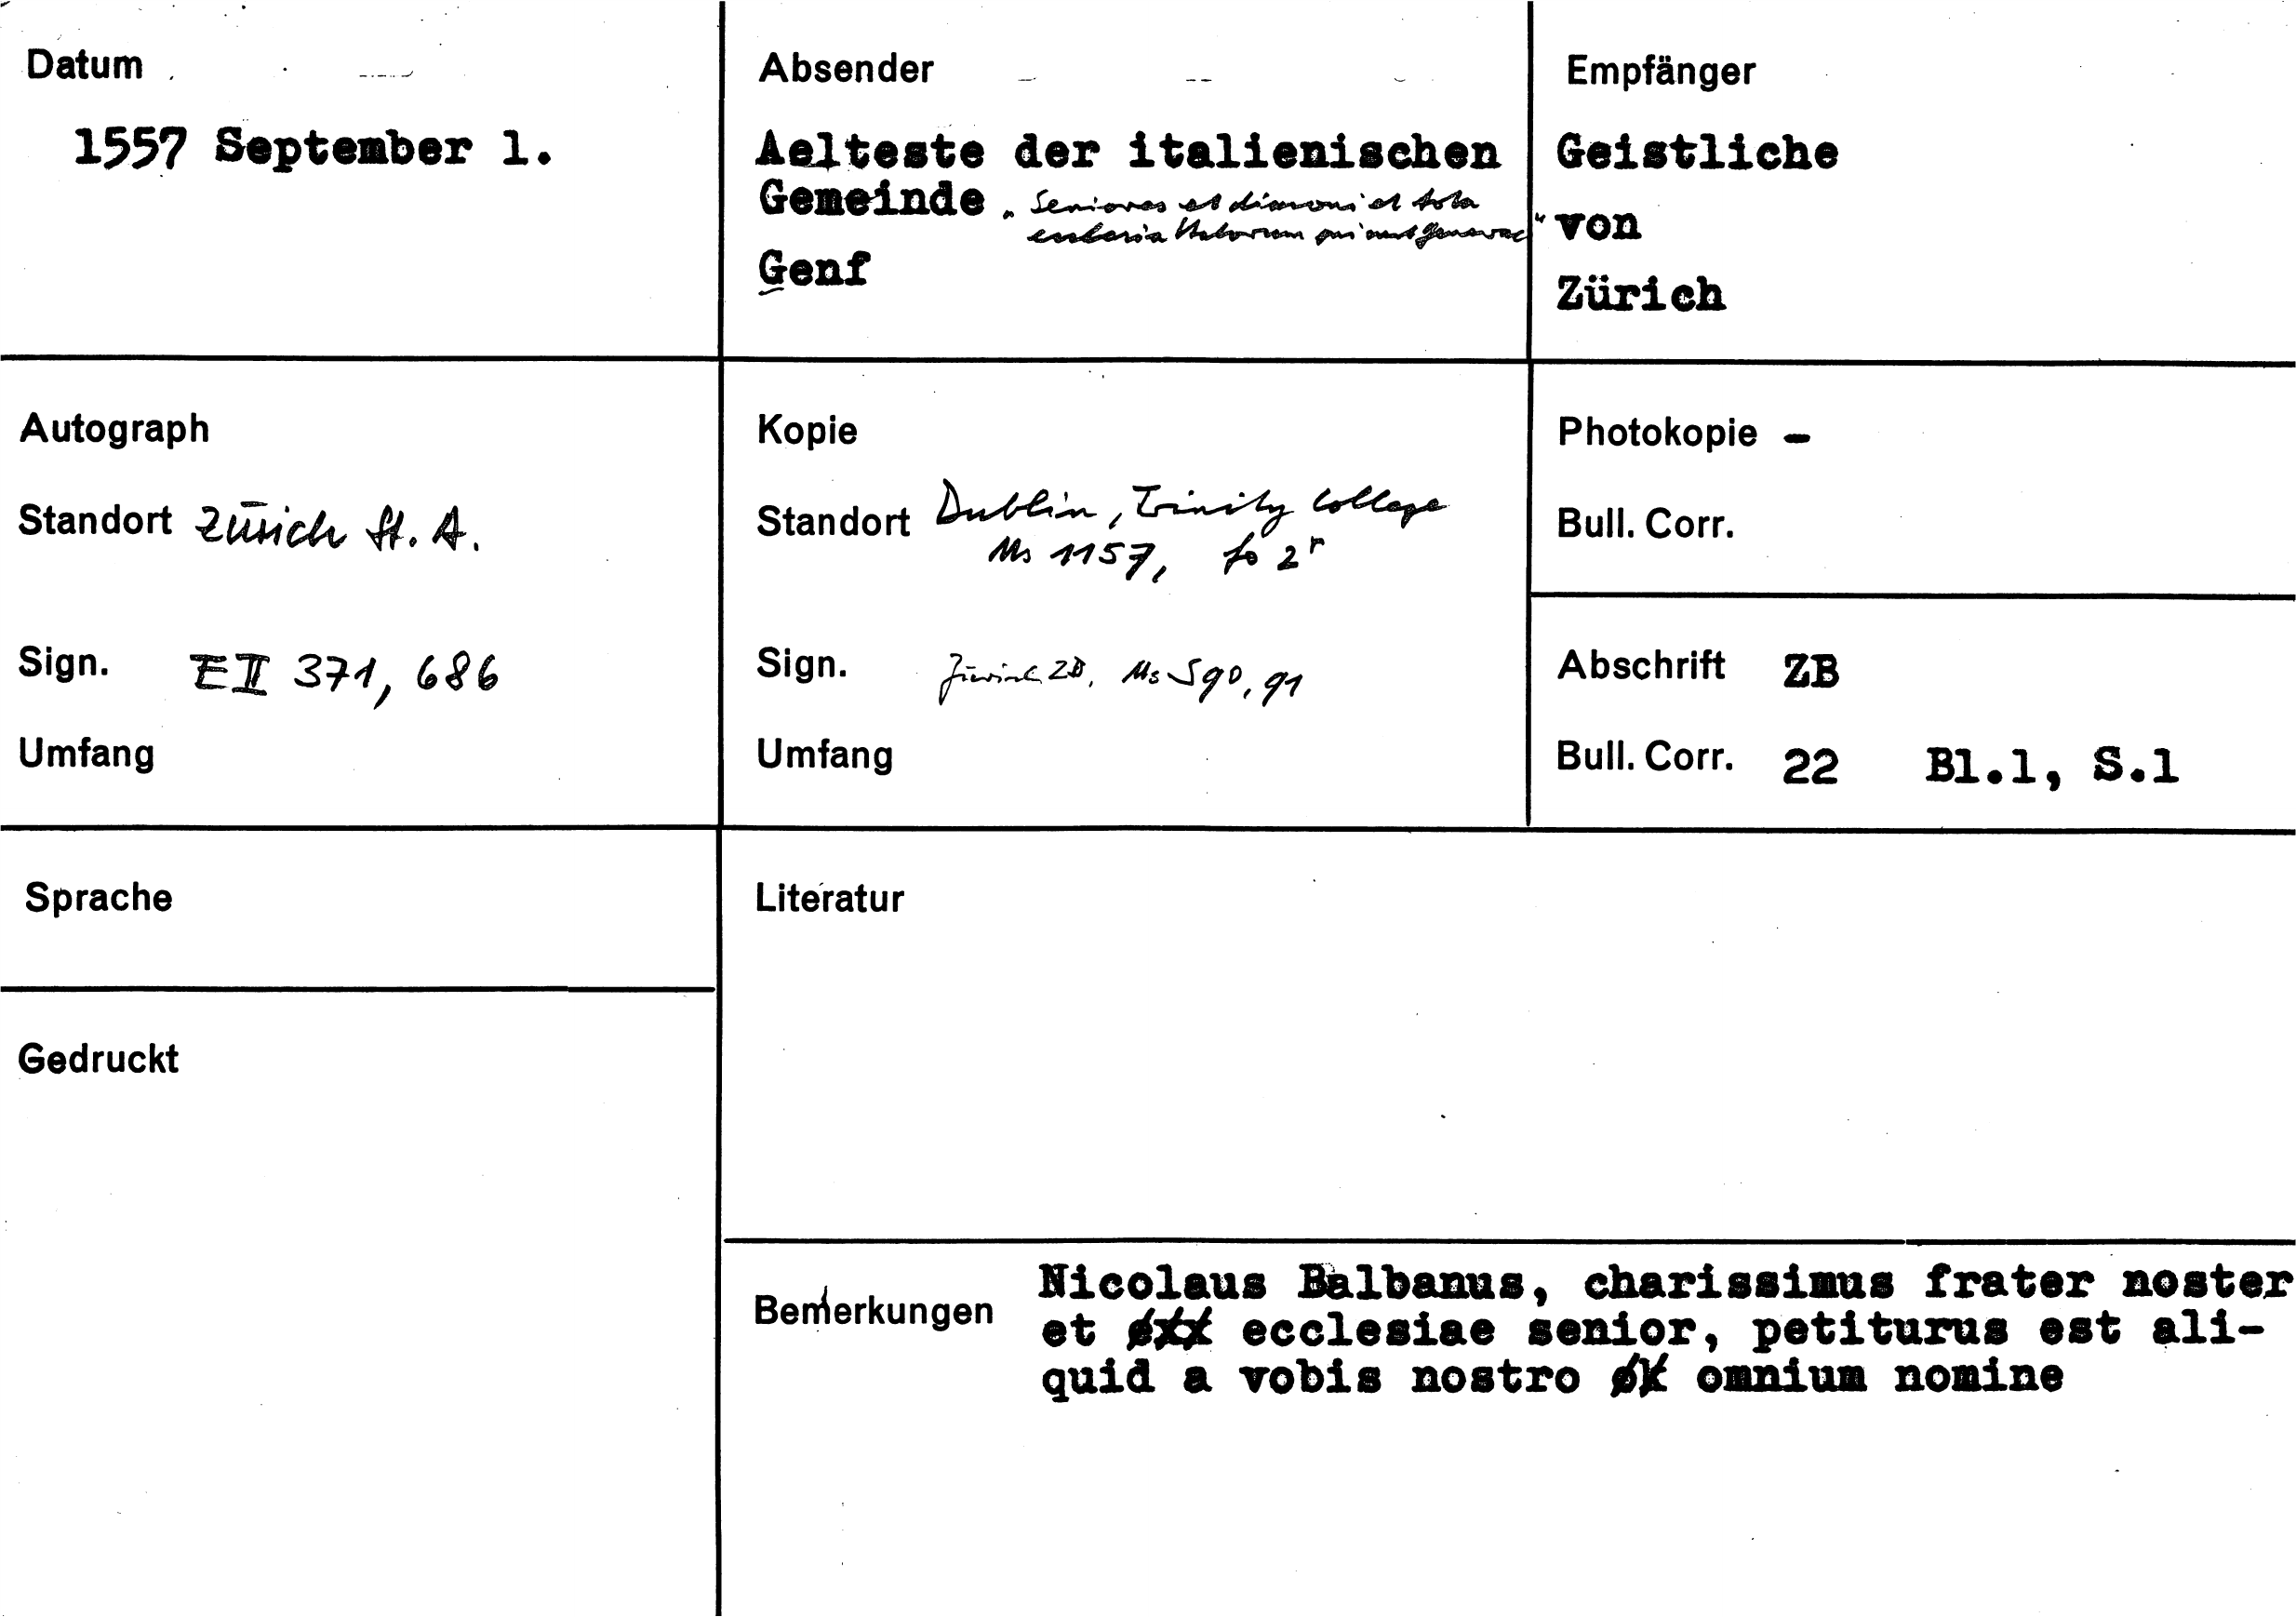 Datum
1557 September 1.
Absender
Aelteste der italienischen
Gemeinde „Seniores et diaconi et tota
ecclesia Italorum qui sunt Genevae“
Genf
Empfänger
Geistliche
von
Zürich
Autograph
Standort Zürich St. A.
Sign. E II 371, 686
Umfang
Kopie
Standort Dublin, Trinity College
Ms 1157, fo 2r
Sign. Zürich ZB, Ms S 90, 91
Umfang
Photokopie -
Bull. Corr.
Abschrift ZB
Bull. Corr. 22 Bl.1, S.1
Sprache
Gedruckt
Literatur
Bemerkungen
Nicolaus Balbanus, charissimus frater noster
et ecclesiae senior, petiturus est ali-
quid a vobis nostro omnium nomine